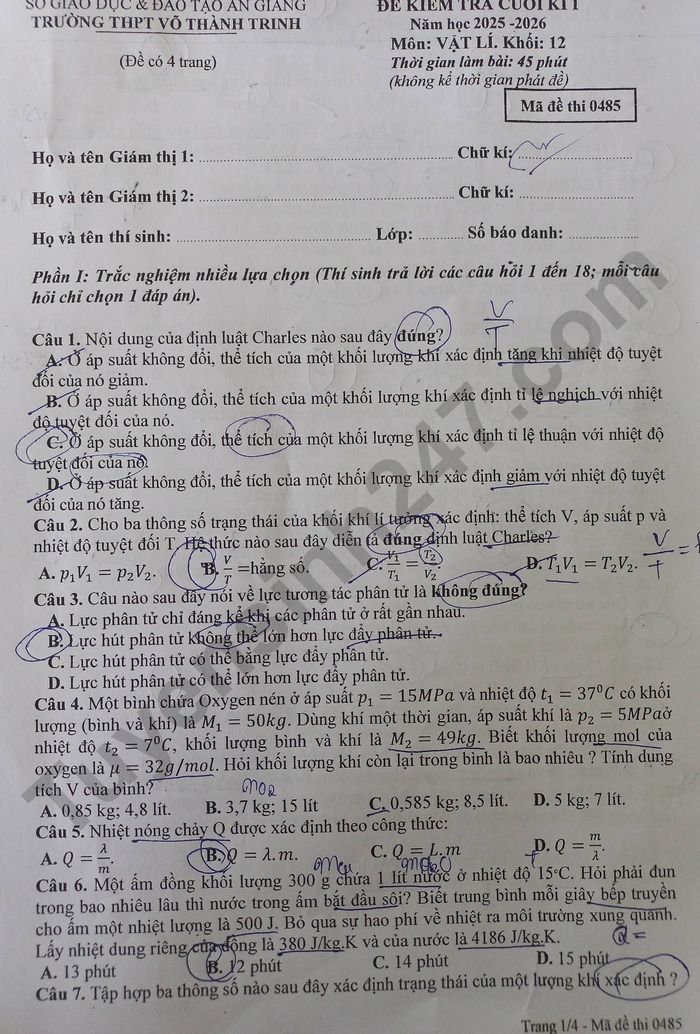 SỞ GIÁO DỤC & ĐÀO TẠO AN GIANG
TRƯỜNG THPT VÕ THÀNH TRINH
(Đề có 4 trang)
ĐỀ KIỂM TRA CUỐI KÌ I
Năm học 2025 -2026
Môn: VẬT LÍ. Khối: 12
Thời gian làm bài: 45 phút
(không kể thời gian phát đề)
Mã đề thi 0485
Họ và tên Giám thị 1: ........ Chữ kí: ........
Họ và tên Giám thị 2: ........ Chữ kí: ........
Họ và tên thí sinh: ........ Lớp: ........ Số báo danh: ........
Phần I: Trắc nghiệm nhiều lựa chọn (Thí sinh trả lời các câu hỏi 1 đến 18; mỗi câu
hỏi chỉ chọn 1 đáp án).
V/T
Câu 1. Nội dung của định luật Charles nào sau đây đúng?
A. Ở áp suất không đổi, thể tích của một khối lượng khí xác định tăng khi nhiệt độ tuyệt
đối của nó giảm.
B. Ở áp suất không đổi, thể tích của một khối lượng khí xác định tỉ lệ nghịch với nhiệt
độ tuyệt đối của nó.
C. Ở áp suất không đổi, thể tích của một khối lượng khí xác định tỉ lệ thuận với nhiệt độ
tuyệt đối của nó.
D. Ở áp suất không đổi, thể tích của một khối lượng khí xác định giảm với nhiệt độ tuyệt
đối của nó tăng.
Câu 2. Cho ba thông số trạng thái của khối khí lí tưởng xác định: thể tích V, áp suất p và
nhiệt độ tuyệt đối T. Hệ thức nào sau đây diễn tả đúng định luật Charles?
A. p₁V₁ = p₂V₂. B. V/T =hằng số. C. V₁/T₁ = T₂/V₂. D. T₁V₁ = T₂V₂. V/T =
Câu 3. Câu nào sau đây nói về lực tương tác phân tử là không đúng?
A. Lực phân tử chỉ đáng kể khi các phân tử ở rất gần nhau.
B. Lực hút phân tử không thể lớn hơn lực đẩy phân tử.
C. Lực hút phân tử có thể bằng lực đẩy phân tử.
D. Lực hút phân tử có thể lớn hơn lực đẩy phân tử.
Câu 4. Một bình chứa Oxygen nén ở áp suất p₁ = 15MPa và nhiệt độ t₁ = 37⁰C có khối
lượng (bình và khí) là M₁ = 50kg. Dùng khí một thời gian, áp suất khí là p₂ = 5MPaở
nhiệt độ t₂ = 7⁰C, khối lượng bình và khí là M₂ = 49kg. Biết khối lượng mol của
oxygen là μ = 32g/mol. Hỏi khối lượng khí còn lại trong bình là bao nhiêu ? Tính dung
tích V của bình?
A. 0,85 kg; 4,8 lít. B. 3,7 kg; 15 lít C. 0,585 kg; 8,5 lít. D. 5 kg; 7 lít.
Câu 5. Nhiệt nóng chảy Q được xác định theo công thức:
A. Q = λ/m. B. Q = λ.m. C. Q = L.m D. Q = m/λ.
Câu 6. Một ấm đồng khối lượng 300 g chứa 1 lít nước ở nhiệt độ 15◦C. Hỏi phải đun
trong bao nhiêu lâu thì nước trong ấm bắt đầu sôi? Biết trung bình mỗi giây bếp truyền
cho ấm một nhiệt lượng là 500 J. Bỏ qua sự hao phí về nhiệt ra môi trường xung quanh.
Lấy nhiệt dung riêng của đồng là 380 J/kg.K và của nước là 4186 J/kg.K. Q =
A. 13 phút B. 12 phút C. 14 phút D. 15 phút
Câu 7. Tập hợp ba thông số nào sau đây xác định trạng thái của một lượng khí xác định ?
Trang 1/4 - Mã đề thi 0485
Tuyensinh247.com